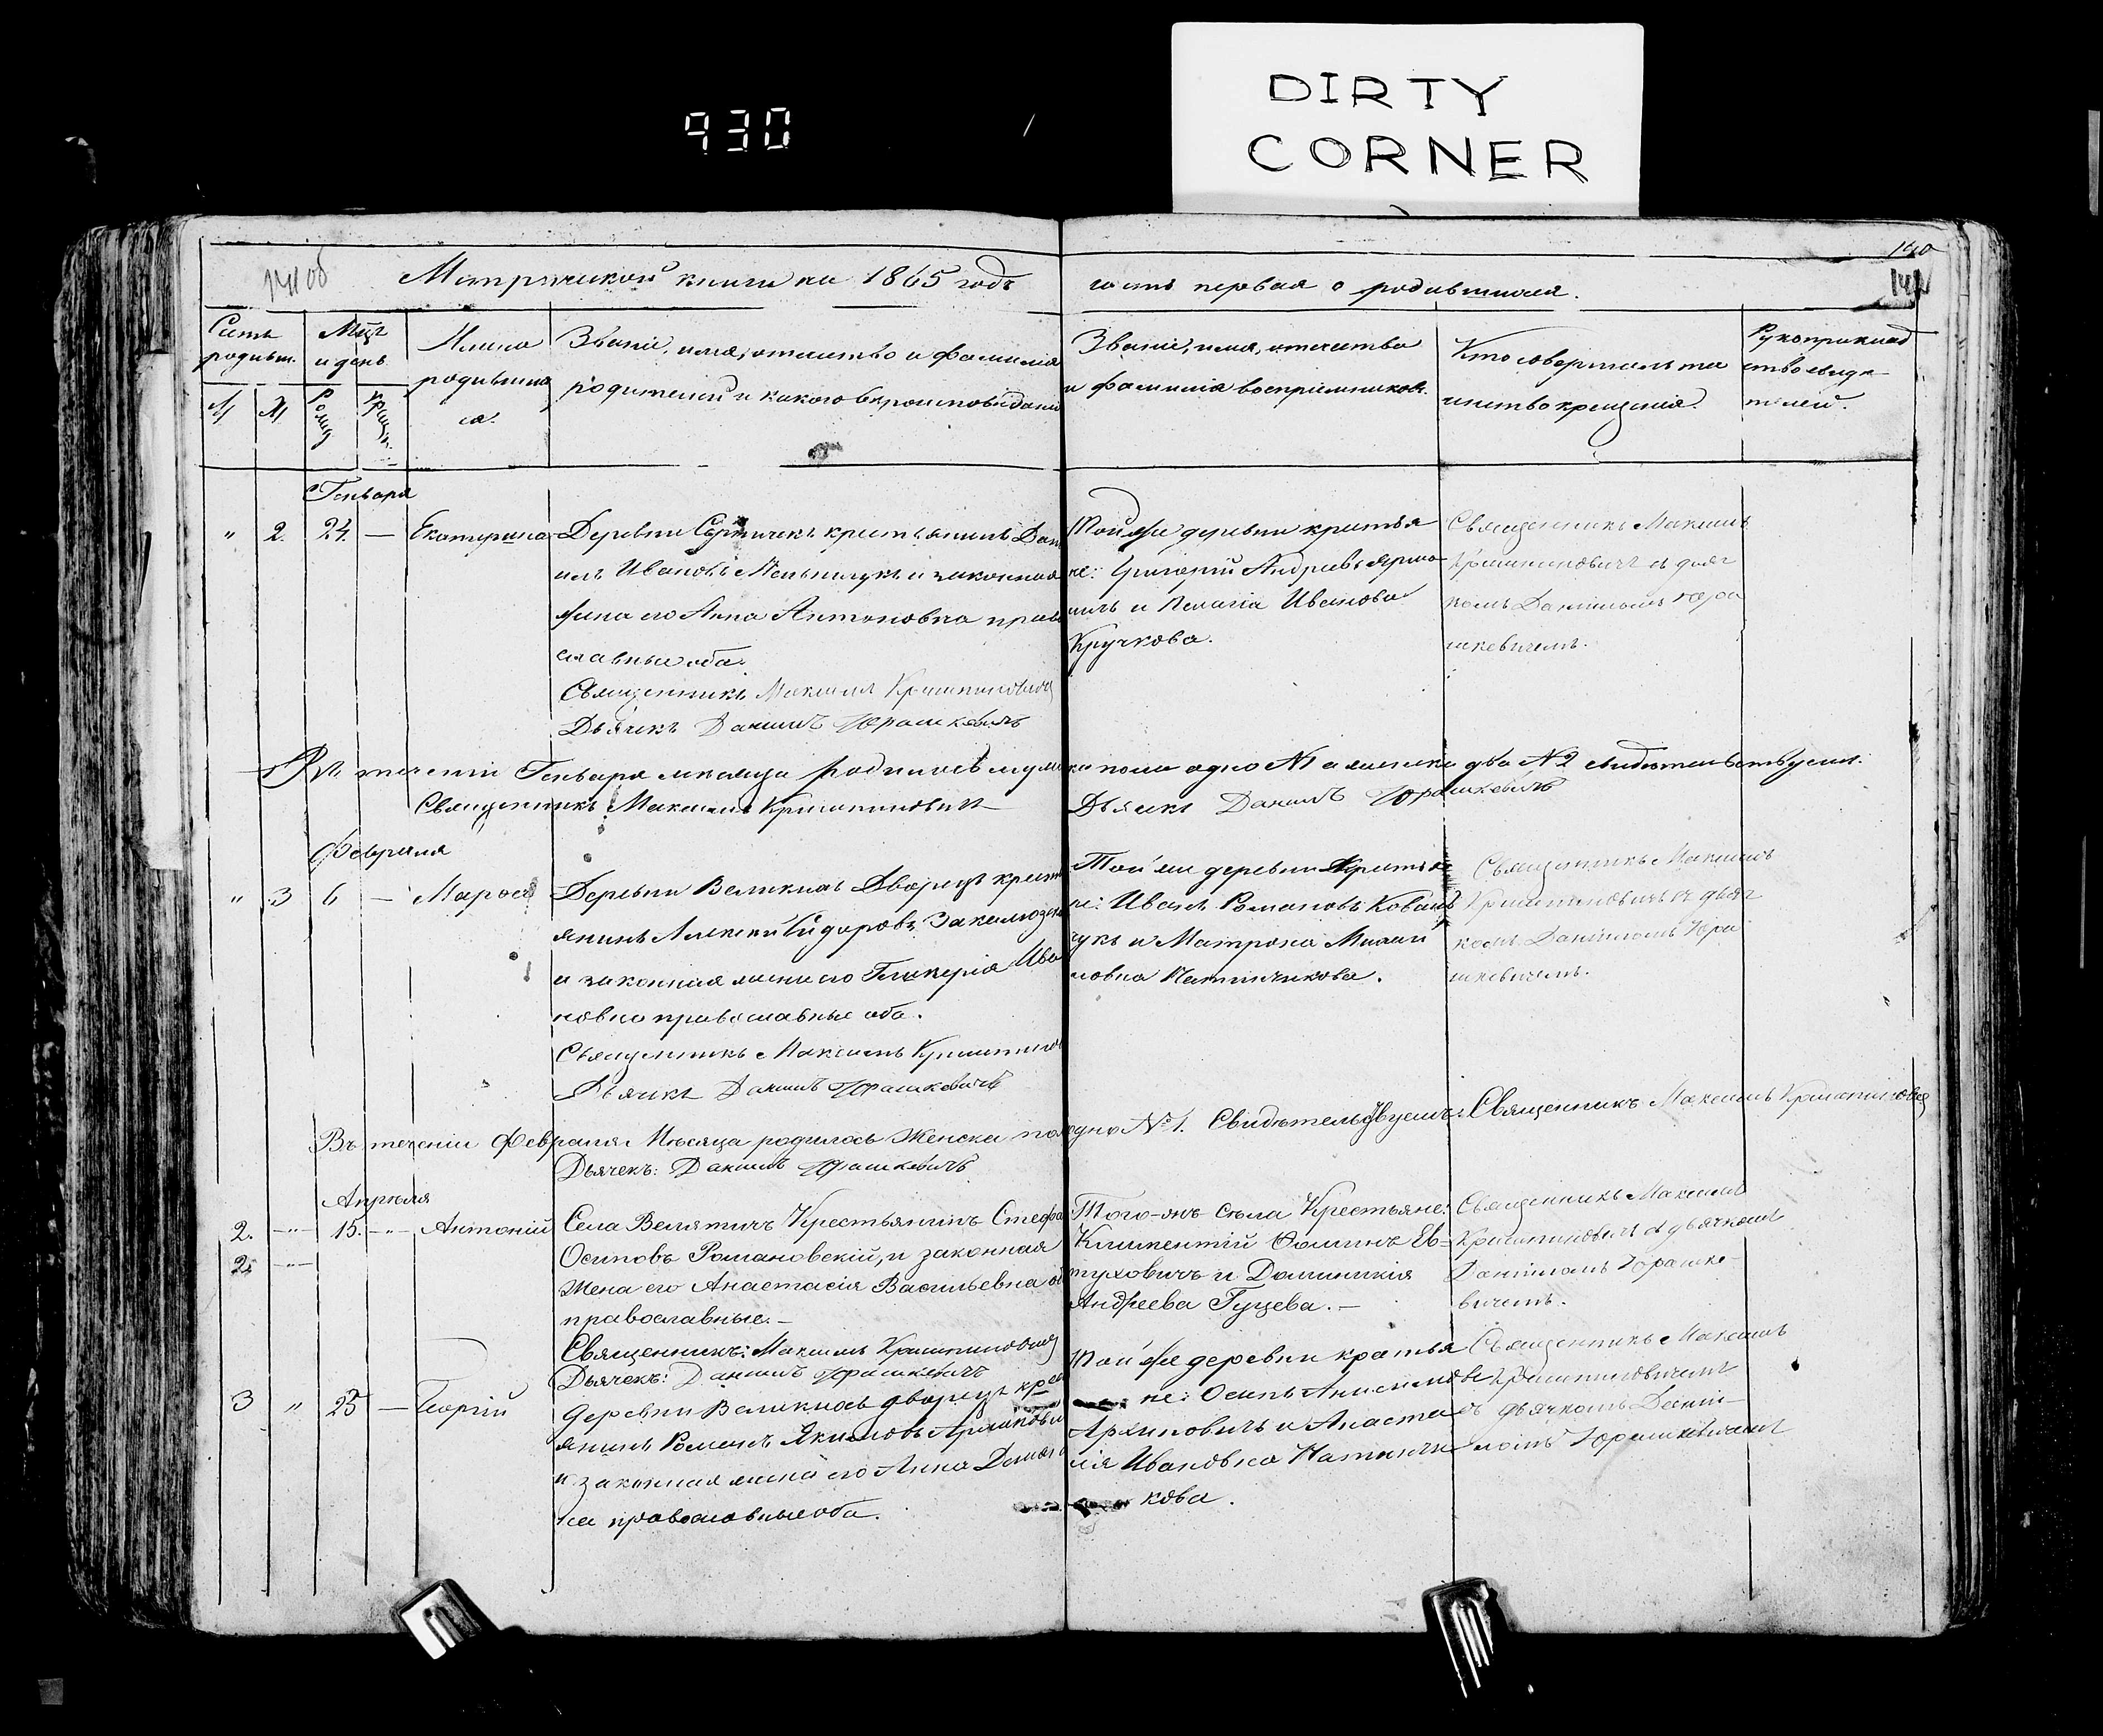 DIRTY
CORNER
930
140
141
Метрической книги на 1865 годъ часть первая о родившихся.
Счетъ родивш.
М
Ж
Мѣц. и день
Рожд
Крещ.
Имена родившихся.
Званіе, имя, отчество и фамилія
родителей и какого вѣроисповѣданія
Званіе, имя, отчество
и фамилія воспріемниковъ.
Кто совершалъ та
инство крещенія.
Рукоприклад
ство свидѣ
телей.
Генваря
" 2. 24. — Екатерина
Деревни крестьянинъ Дан
илъ Ивановъ Мельничукъ и законная
жена его Анна Антоновна право
славные оба.
Священникъ Максимъ
Дьячекъ Даніилъ Юрашкевичъ
Той же деревни крестья
не: Григорій Андреевъ
и Пелагія Иванова
Кручкова.
Священникъ Максимъ
съ дьяч
комъ Даніиломъ Юра
шкевичемъ.
Въ теченіи Генваря мѣсяца родилось муже ка пола одно №1 а женска два №2 свидѣтельствуемъ.
Священникъ Максимъ
Дьячекъ Даніилъ Юрашкевичъ
Февраля
" 3 6 — Марѳа
Деревни Великихъ Дворецъ крест
янинъ Алексѣй Сидоровъ
и законная жена его Гликерія Ива
новна православные оба.
Священникъ Максимъ
Дьячекъ Даніилъ Юрашкевичъ
Той же деревни Крестья
не: Иванъ Романовъ Коваль
чукъ и Матрона Михай
ловна
Священникъ Максимъ
съ дьяч
комъ Даніиломъ Юра
шкевичемъ.
Въ теченіи Февраля Мѣсяца родилось Женска пола одно №1. Свидѣтельствуемъ: Священникъ Максимъ
Дьячекъ: Даніилъ Юрашкевичъ
Апрѣля
2. -"- 15. -"- Антоній
2. -"-
Села Велятичъ Крестьянинъ Стефа
Осиповъ Романовскій, и законная
Жена его Анастасія Васильевна об
православные.—
Священникъ: Максимъ
Дьячекъ: Даніилъ Юрашкевичъ
Того-жъ Села Крестьяне:
Климентій Ѳоминъ Ев-
туховичъ и Доминикія
Андреева Гуцева.—
Священникъ Максимъ
съ дьячкомъ
Даніиломъ Юрашке-
вичемъ.
3 " 25 — Георгій
Деревни Великихъ дворецъ крес
янинъ Романъ Якимовъ
и законная жена его Анна
на православные оба.
Той же деревни крестья
не: Осипъ Анисимовъ
Архиповичъ и Анаста
сія Ивановна
кова.
Священникъ Максимъ
съ дьячкомъ Даніи-
ломъ Юрашкевичемъ